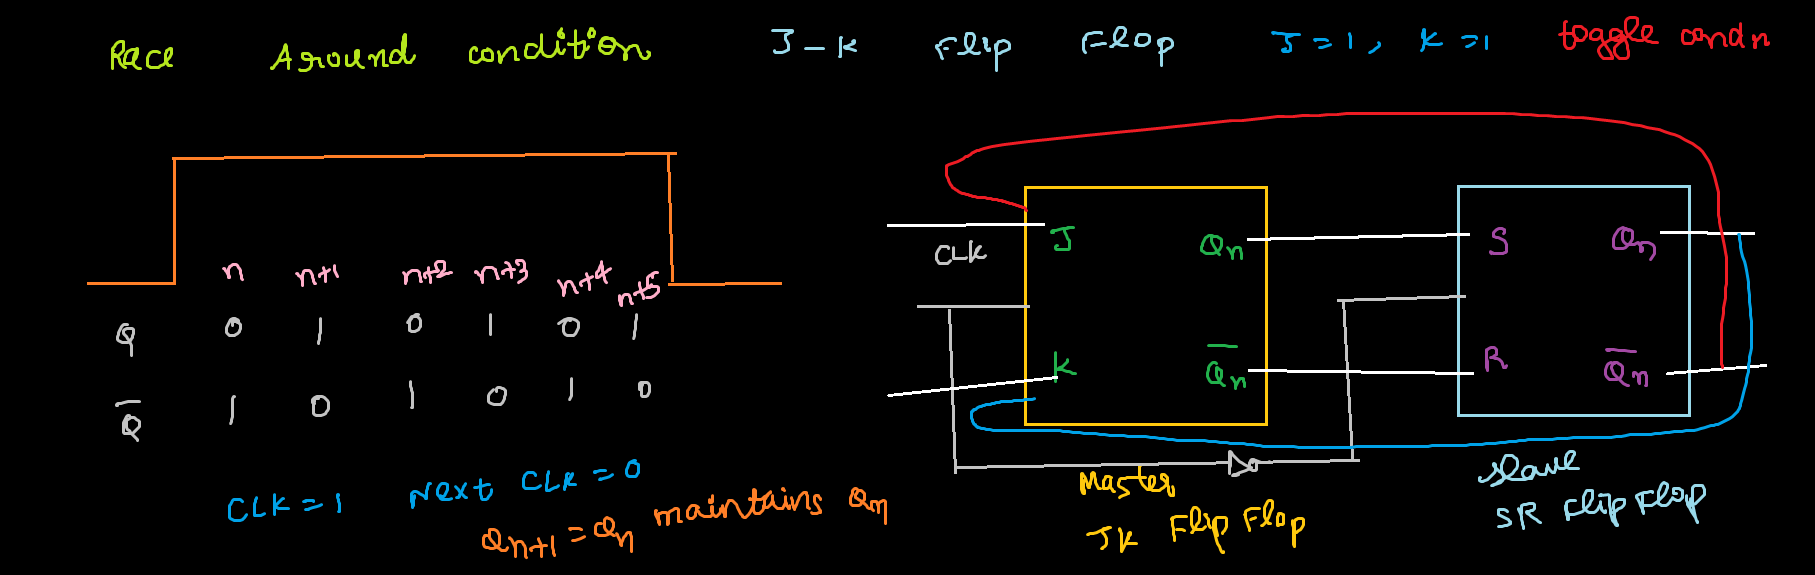 Race Around condition J-K Flip Flop J=1, K=1 toggle condn
n n+1 n+2 n+3 n+4 n+5
Q 0 1 0 1 0 1
Q̅ 1 0 1 0 1 0
CLK=1 Next CLK=0
Qn+1 = Qn maintains Qn
J Qn S Qn
CLK
K Q̅n R Q̅n
Master
JK Flip Flop
Slave
SR Flip Flop